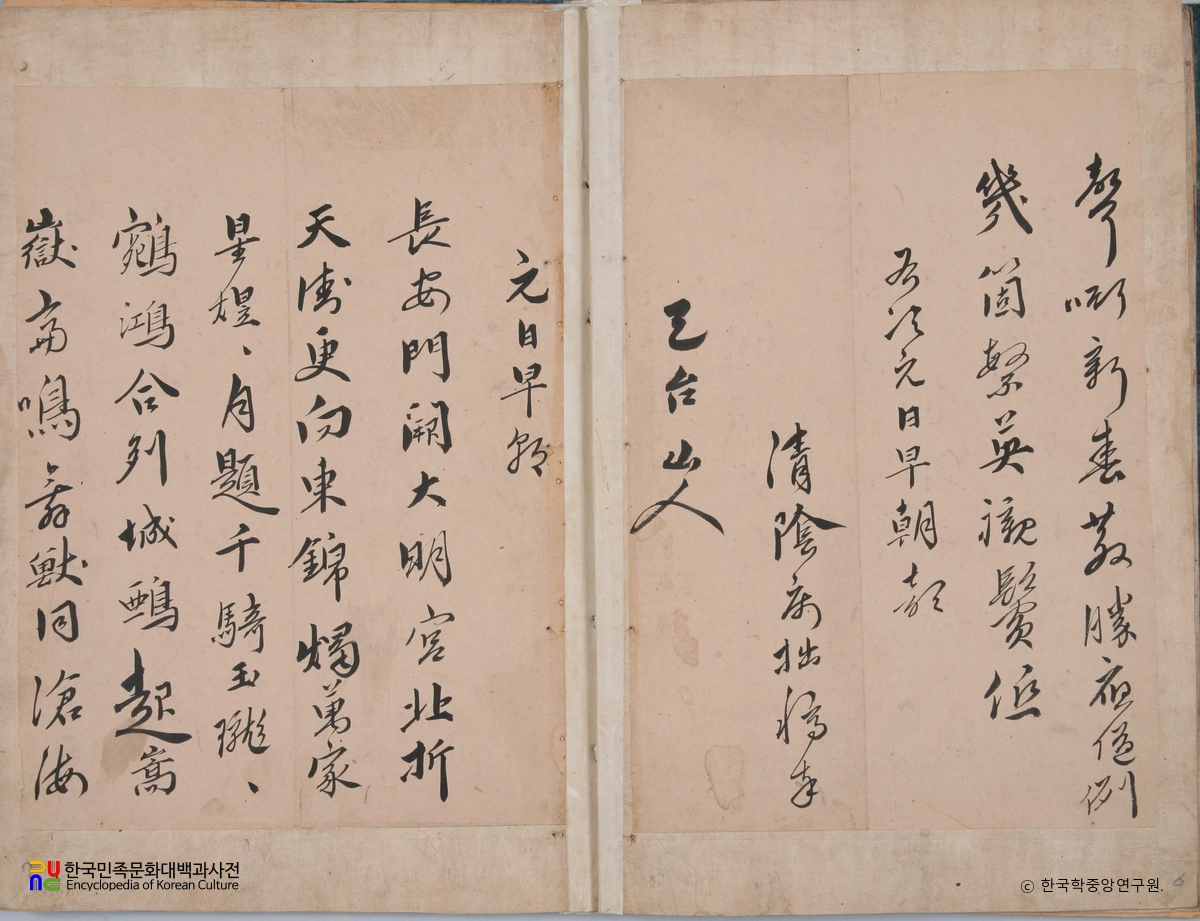 聲 新春 勝 例
幾箇繁英 鬢似
右次元日早朝韻
清陰病拙稿奉
三台山人
元日早朝
長安門闢大明宮北折
天衢更向東錦燭萬家
星煜、月題千騎玉瓏、
鵷鴻合列城鵲起嵩
嶽高鳴舞獸同滄海
한국민족문화대백과사전
Encyclopedia of Korean Culture
ⓒ 한국학중앙연구원.